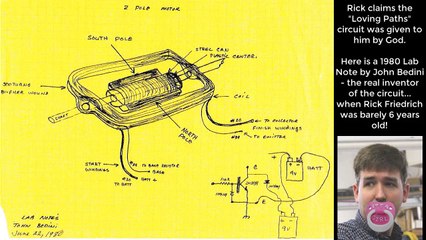 2 POLE MOTOR
SOUTH POLE
STEEL CAN
PLASTIC CENTER.
COIL
SHAFT
NORTH POLE
TO COLLECTOR
FINISH WINDINGS
TO EMITTER
START WINDINGS
BASE
9V
BATT
9V
LAB NOTES
JOHN BEDINI
JUNE 22, 1980
Rick claims the
"Loving Paths"
circuit was given to
him by God.
Here is a 1980 Lab
Note by John Bedini
- the real inventor
of the circuit...
when Rick Friedrich
was barely 6 years
old!